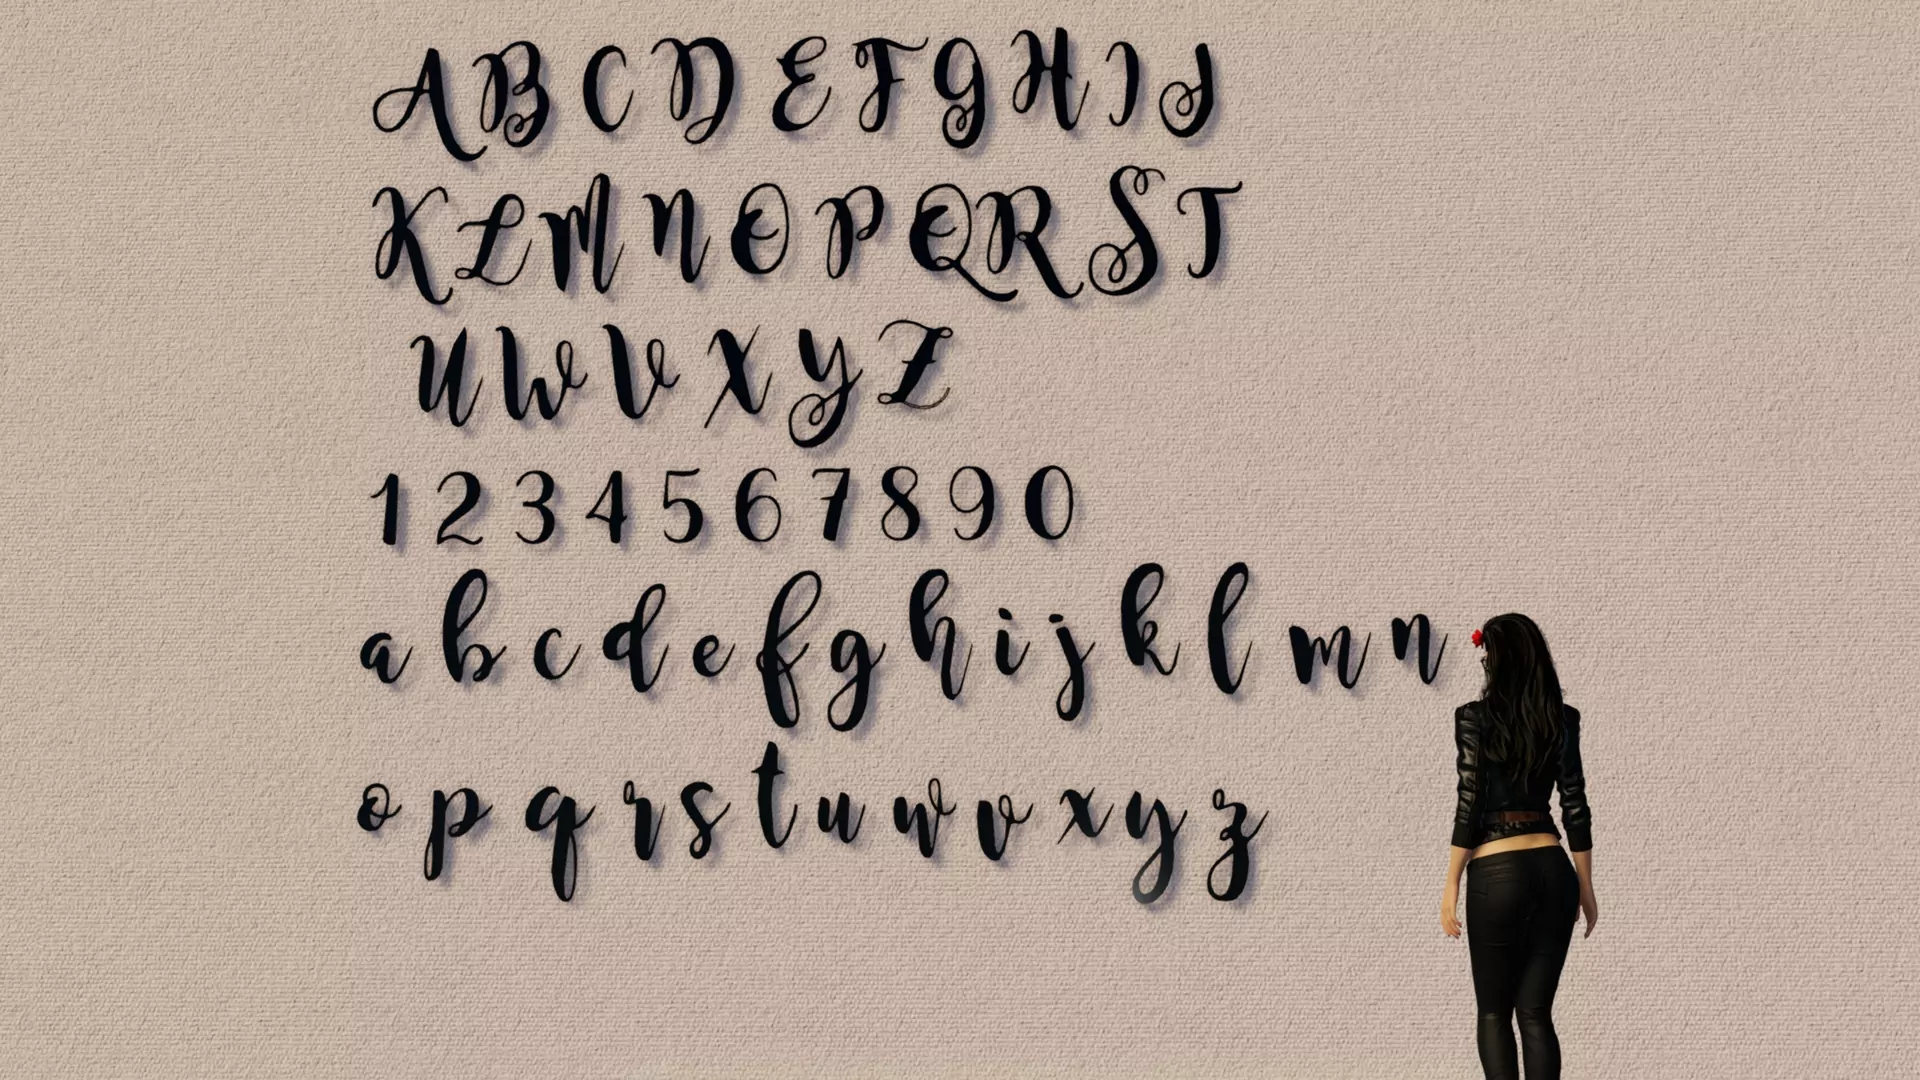 A B C D E F G H I J
K L M N O P Q R S T
U W V X Y Z
1 2 3 4 5 6 7 8 9 0
a b c d e f g h i j k l m n
o p q r s t u w v x y z